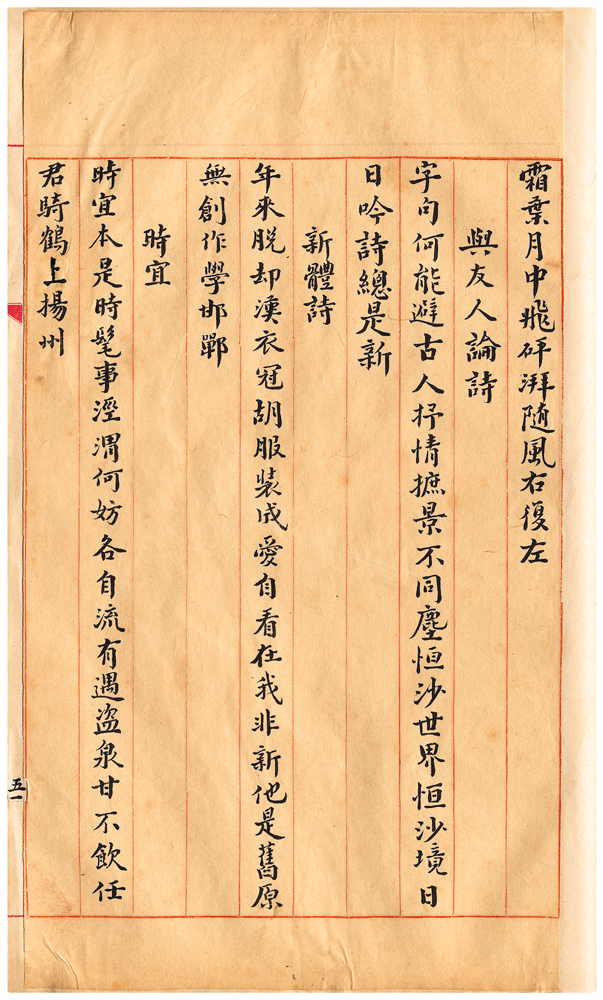 霜葉月中飛砰湃随風右復左
與友人論詩
字句何能避古人抒情摭景不同塵恒沙世界恒沙境日
日吟詩總是新
新體詩
年來脱却漢衣冠胡服装成愛自看在我非新他是舊原
無創作學邯鄲
時宜
時宜本是時髦事涇渭何妨各自流有遇盗泉甘不飲任
君騎鶴上揚州
五一